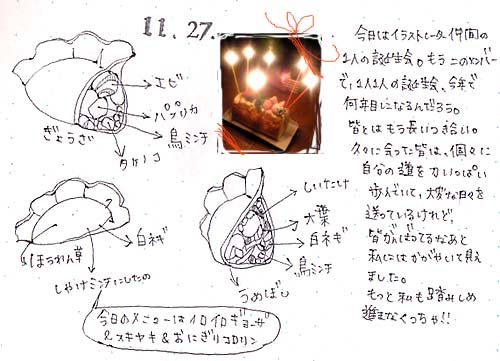 11.27.
エビ
パプリカ
鳥ミンチ
タケノコ
ぎょうざ
白ネギ
ほうれん草
しゃけミンチにしたの
しいたけ
大葉
白ネギ
鳥ミンチ
うめぼし
今日のメニューはイロイロギョーザ
&スキヤキ&おにぎりコロリン
今日はイラストレーター仲間の
1人の誕生会。もうこのメンバー
で、1人1人の誕生会、今年で
何年目になるんだろう。
皆とはもう長いつき合い。
久々に会った皆は、個々に
自分の道を力いっぱい
歩んでいて、大変な日々を
送っているけれど、
皆がんばってるなあと
私にはかがやいて見え
ました。
もっと私も踏みしめ
進まなくっちゃ!!